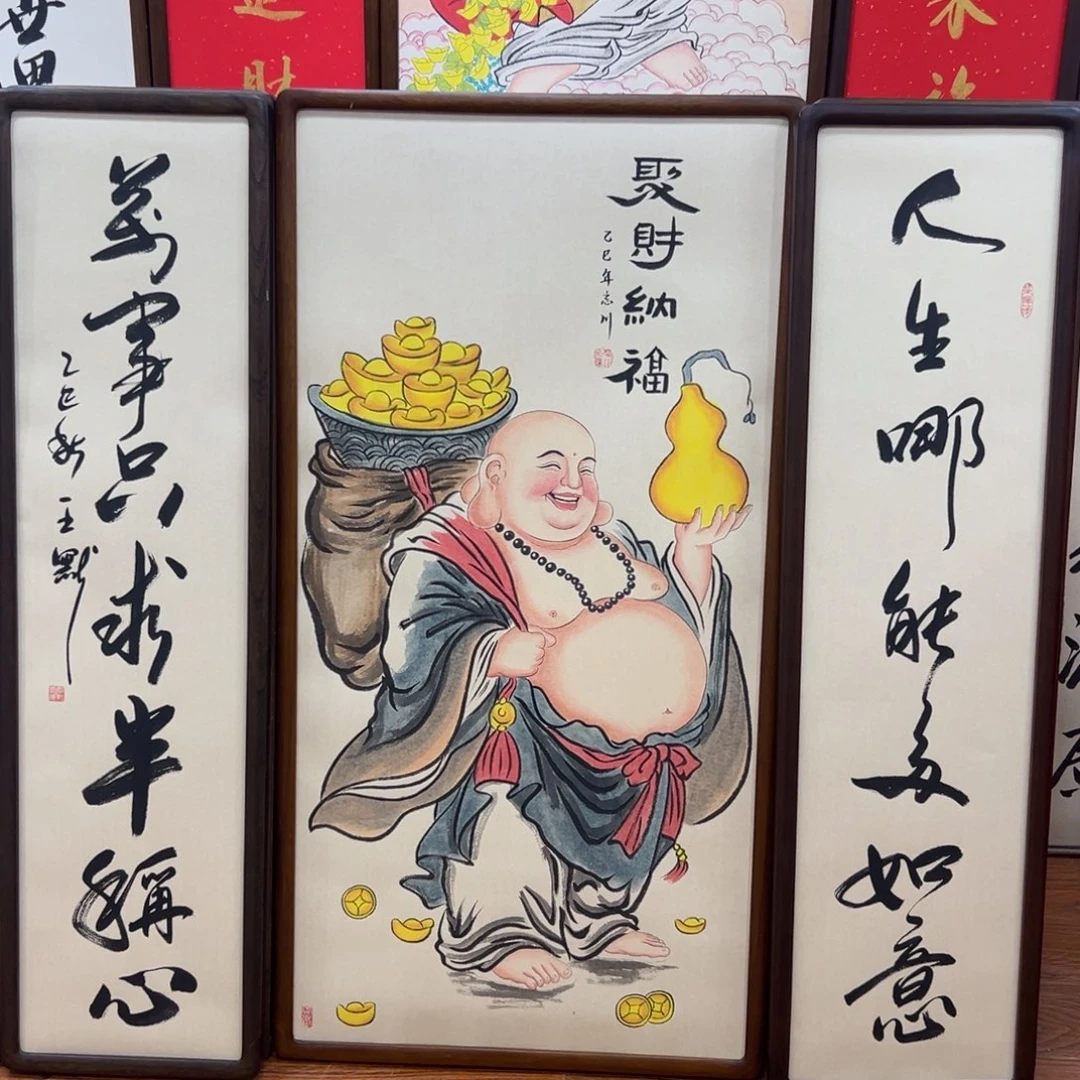 世界
財
人生哪能多如意
聚財納福
乙巳年
萬事只求半稱心
乙巳秋王默